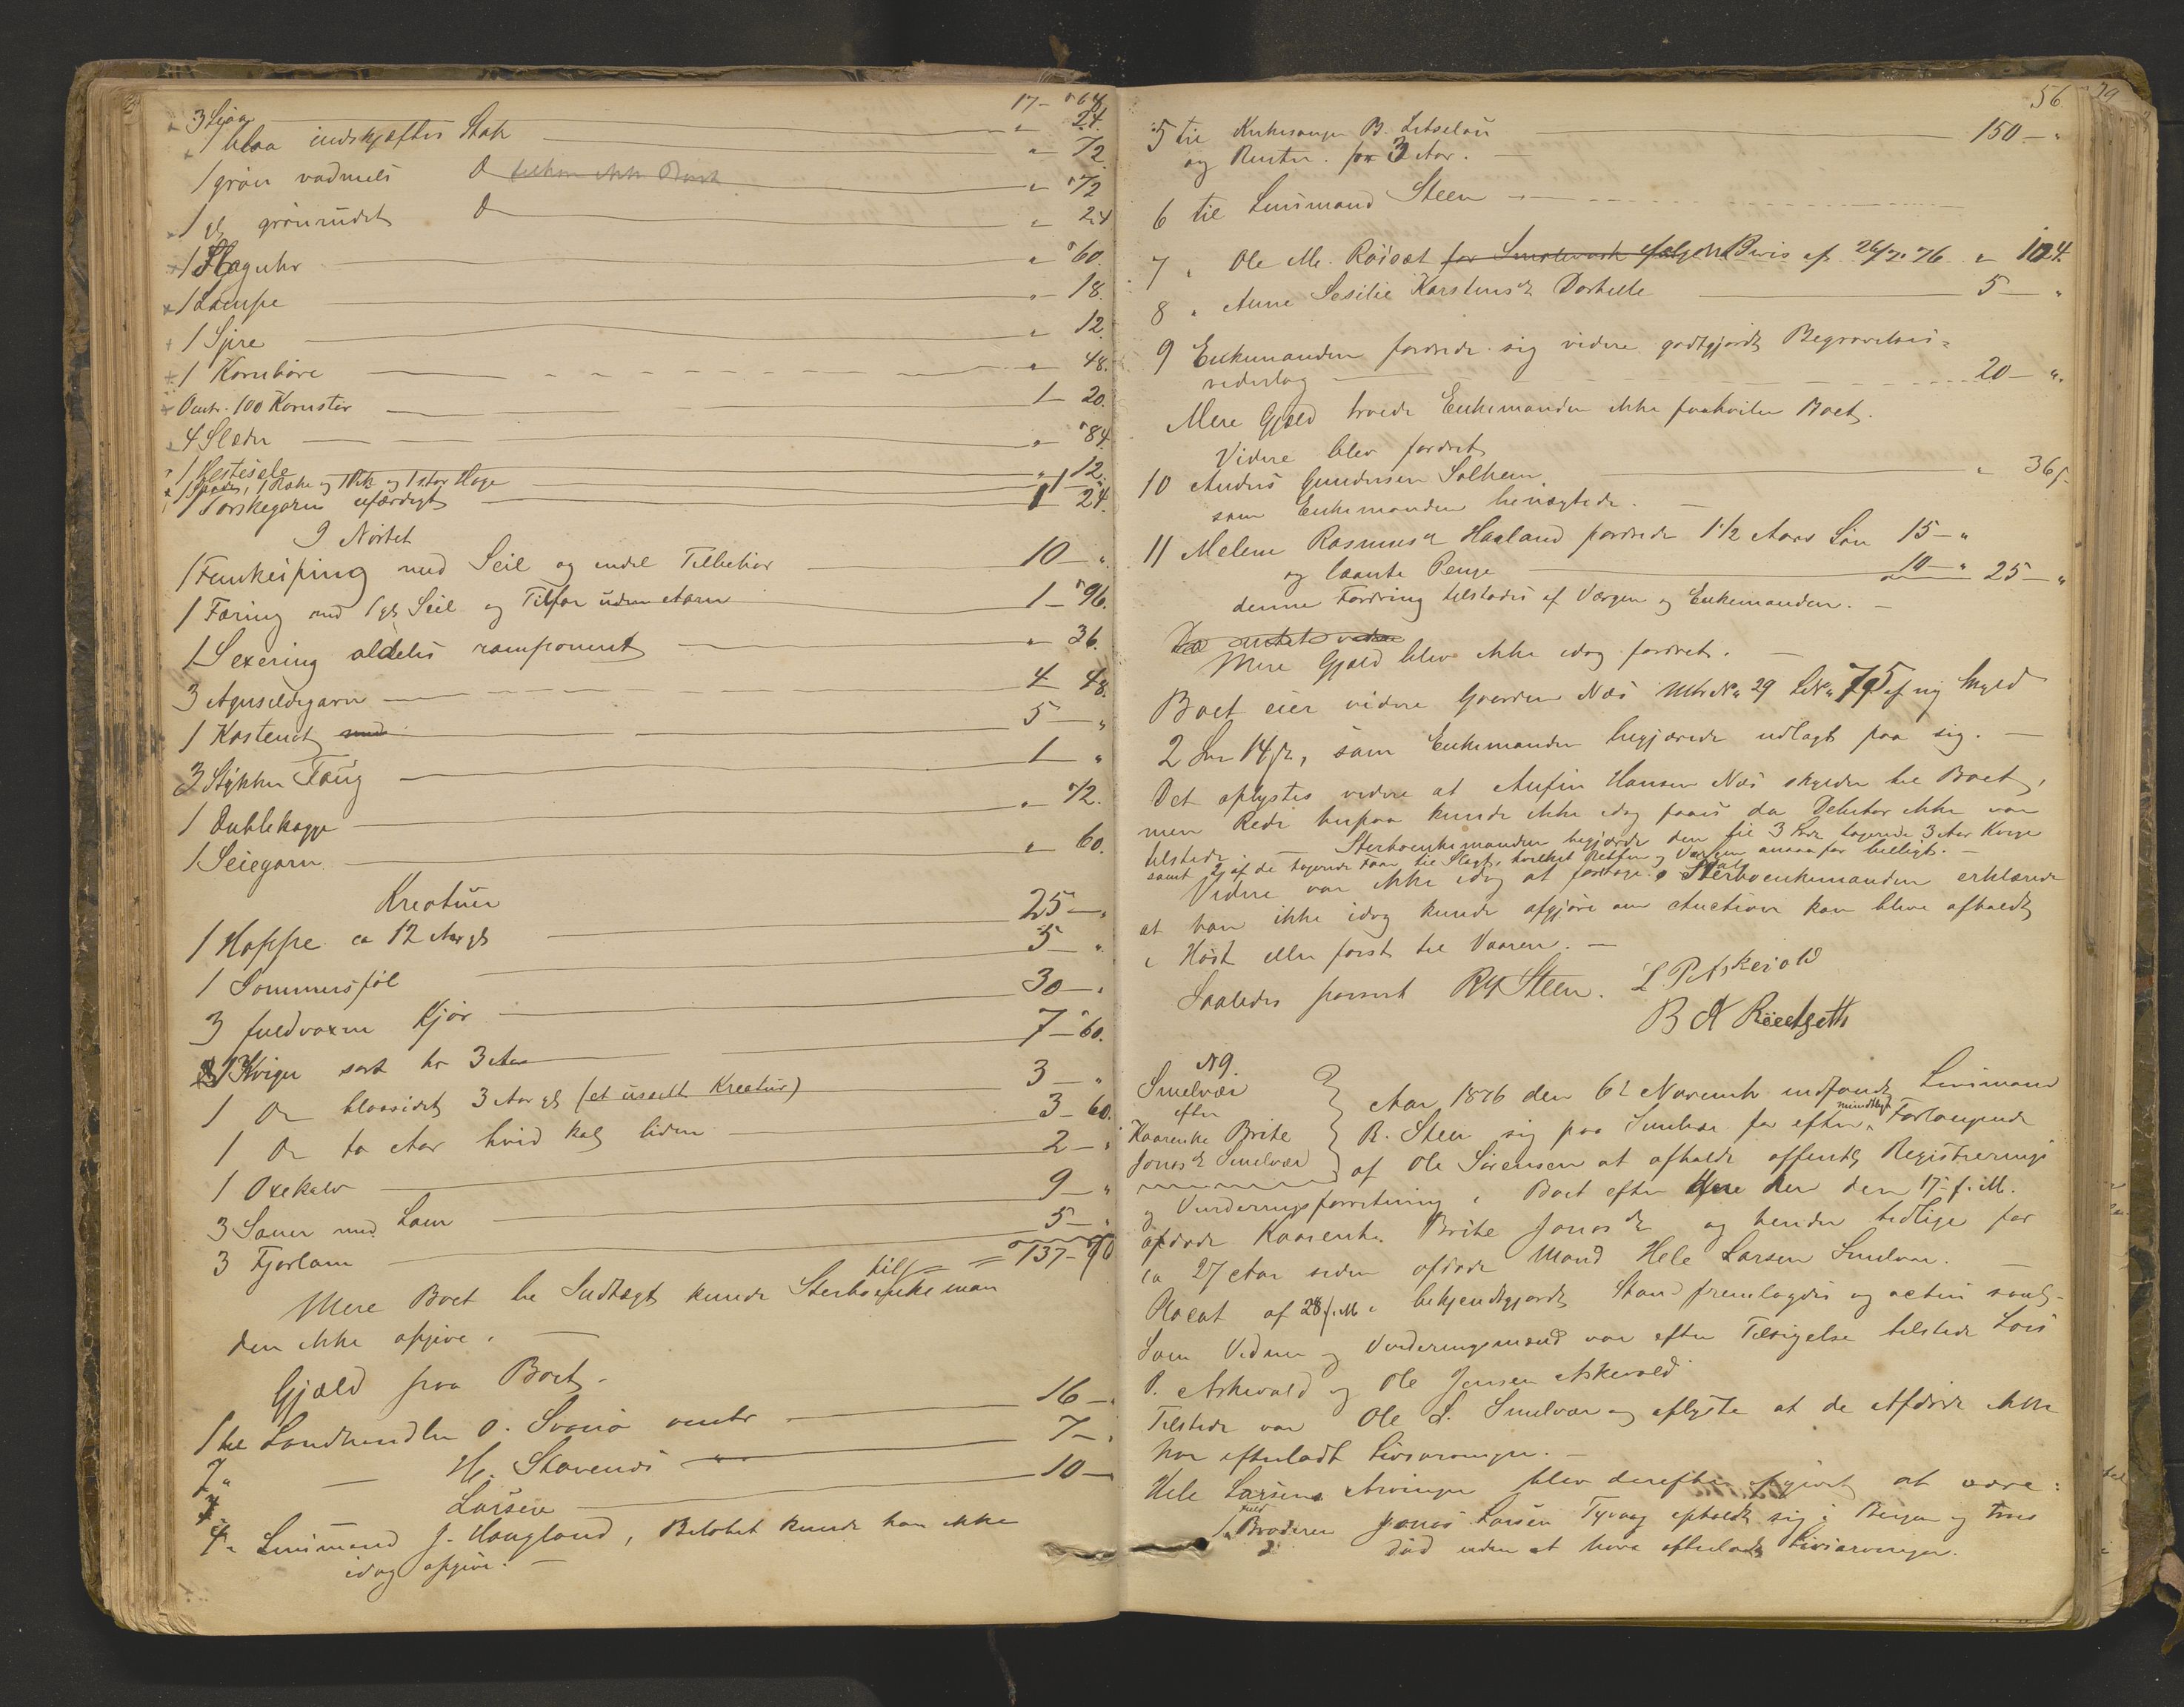 17 - " 64
3 Liaa " 24.
1 blaa indskjæftes Stak " 72
1 grøn vadmels D " 72
1 gl grønrudet D " 24
1 Slaguhr " 60.
1 Lampe " 18.
1 Spire " 12
1 Kornbøre " 48.
Omtr. 100 Kornstør 1 - 20.
4 Slæder " 84.
1 Hestesele " 12.
1 Spade, 1 Rake og 1 Pik og 1 stor Hage 1
1 Torskegarn ufærdigt 1 24.
I Nøstet
1 Femkeiping med Seil og endel Tilbehør 10 - "
1 Færing med 1 gl Seil og Tilfar uden Aarer 1 - 96.
1 Sexering aldeles ramponeret " 36.
3 Agnsildgarn 4 48.
1 Kastenot 5 - "
3 Stykker Taug 1 "
1 Dubblekagge " 72.
1 Seiegarn " 60.
Kreatuer
1 Hoppe ca 12 Aar gl 25 - "
1 Sommersføl 5 - "
3 fuldvoxne Kjør 30 - "
1 Kvige sort hr 3 Aar 7 - 60.
1 Do blaasidet 3 Aar gl (et uselt Kreatur) 3 - "
1 Do to Aar hvid kol liden 3 - 60.
1 Oxekalv 2 - "
3 Sauer med Lam 9 - "
3 Fjorlam 5 - "
137 - 90
Mere Boet til Indtægt kunde Sterboenkeman
den ikke opgive. -
Gjæld paa Boet.
1 til Landhandler O. Svanø omtr 16 - "
2 " - H. Stavenes 7 - "
3 " Larsen 10 -
4 " Lensmand J. Haugland, Beløbet kunde han ikke
idag opgive. -
56
5 til Kirkesanger B. Litseløs 150 - "
og Renter for 3 Aar. -
6 til Lensmand Steen
7 " Ole M. Røisæt for Bevis af 26/7 76 " 104.
8 " Anne Sesilie Karstensdr Dortelle 5 - "
9 Enkemanden fordrede sig videre godtgjordt Begravelses=
vederlag 20 - ".
Mere Gjæld troede Enkemanden ikke paahviler Boet.
Videre blev fordret
10 Anders Gundersen Solheim " 36 s.
som Enkemanden benægtede. -
11 Melene Rasmusdr Haaland fordrede 1 1/2 Aars Løn 15 - "
og laante Penge 10 - " 25 - "
denne Fordring tilstodes af Værgen og Enkemanden. -
Da intet videre
Mere Gjæld blev ikke idag fordret. -
Boet eier videre Gaarden Næs Mtr No 29 LNo 75 af ny Skyld
2 Dr 14 s, som Enkemanden begjærede udlagt paa sig. -
Det oplystes videre at Anfin Hansen Næs skylder til Boet,
men Rede herpaa kunde ikke idag faaes da Debitor ikke var
tilstede. - Sterboenkemanden begjærede den til 3 Spd tagerede 3 Aar Kvige
samt 2 af de tagerede Faar til Slagt, hvilket Retten og Værgen ansaa for billigt. -
Videre var ikke idag at foretage. Sterboenkemanden erklærede
at han ikke idag kunde afgjøre om Auction kan blive afholdt
i Høst eller først til Vaaren. -
Saaledes passeret R Steen. L. P. Askevold
B A Røedsetth
N 9.
Smelvær
efter
Kaarenke Brite
Jonasdr Smelvær
Aar 1876 den 6t Novemb indfandt Lensmand
R. Steen sig paa Smelvær for efter mundtligt Forlangende
af Ole Sørensen at afholde offentlig Registrerings
og Vurderingsforretning i Boet efter den den 17 f. M.
afdøde Kaarenke Brite Jonasdr og hendes tidligere for
ca 27 Aar siden afdøde Mand Hele Larsen Smelvær. -
Placat af 28 f. M. i bekjendtgjordt Stand fremlagdes og acten saal.
Som Vidner og Vurderingsmænd var efter Tilsigelse tilstede Lars
P. Askevold og Ole Jensen Askevold
Tilstede var Ole S. Smelvær og oplyste at de Afdøde ikke
har efterladt Livsarvinger. -
Hele Larsens Arvinger blev derefter opgivet at være:
1 Fuld Broderen Jonas Larsen Tyvaag opholdt sig i Bergen og troes
død uden at have efterladt Livsarvinger.